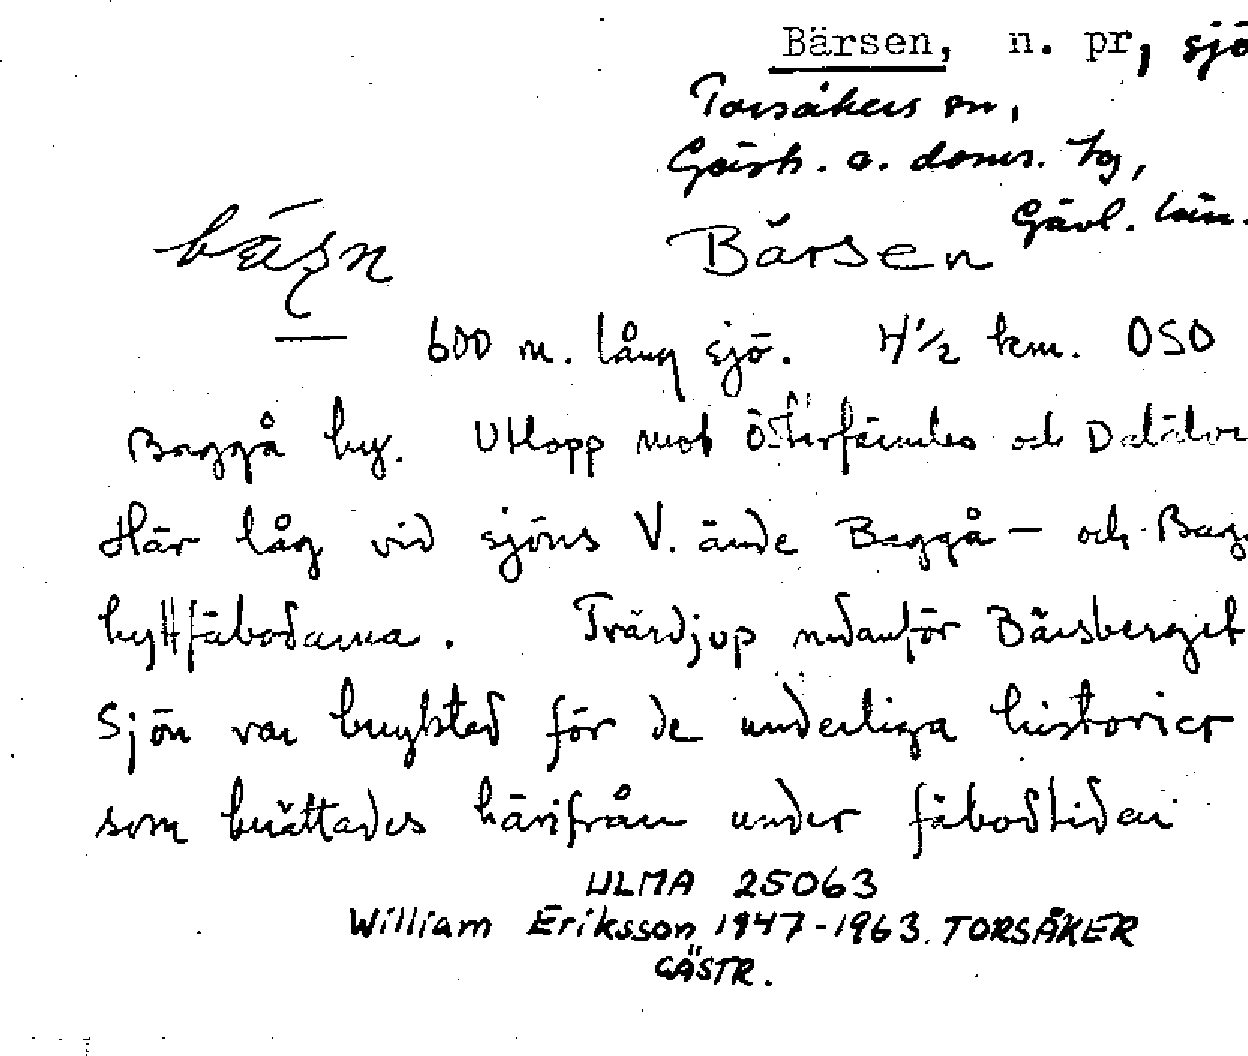 Bärsen, n. pr, sjö
Torsåkers sn,
Gästr. ö. doms. tg,
Gävl. län.
bäṣn Bärsen
600 m. lång sjö. 4 1/2 km. OSO
Baggå by. Utlopp mot Österfärnebo och Dalälve
Här låg vid sjöns V. ände Baggå- och Bag
hyttfäbodarna. Tvärdjup nedanför Bärsberget
Sjön var bryktad för de underliga historier
som berättades härifrån under fäbodtiden
ULMA 25063
William Eriksson 1947-1963. TORSÅKER
GÄSTR.